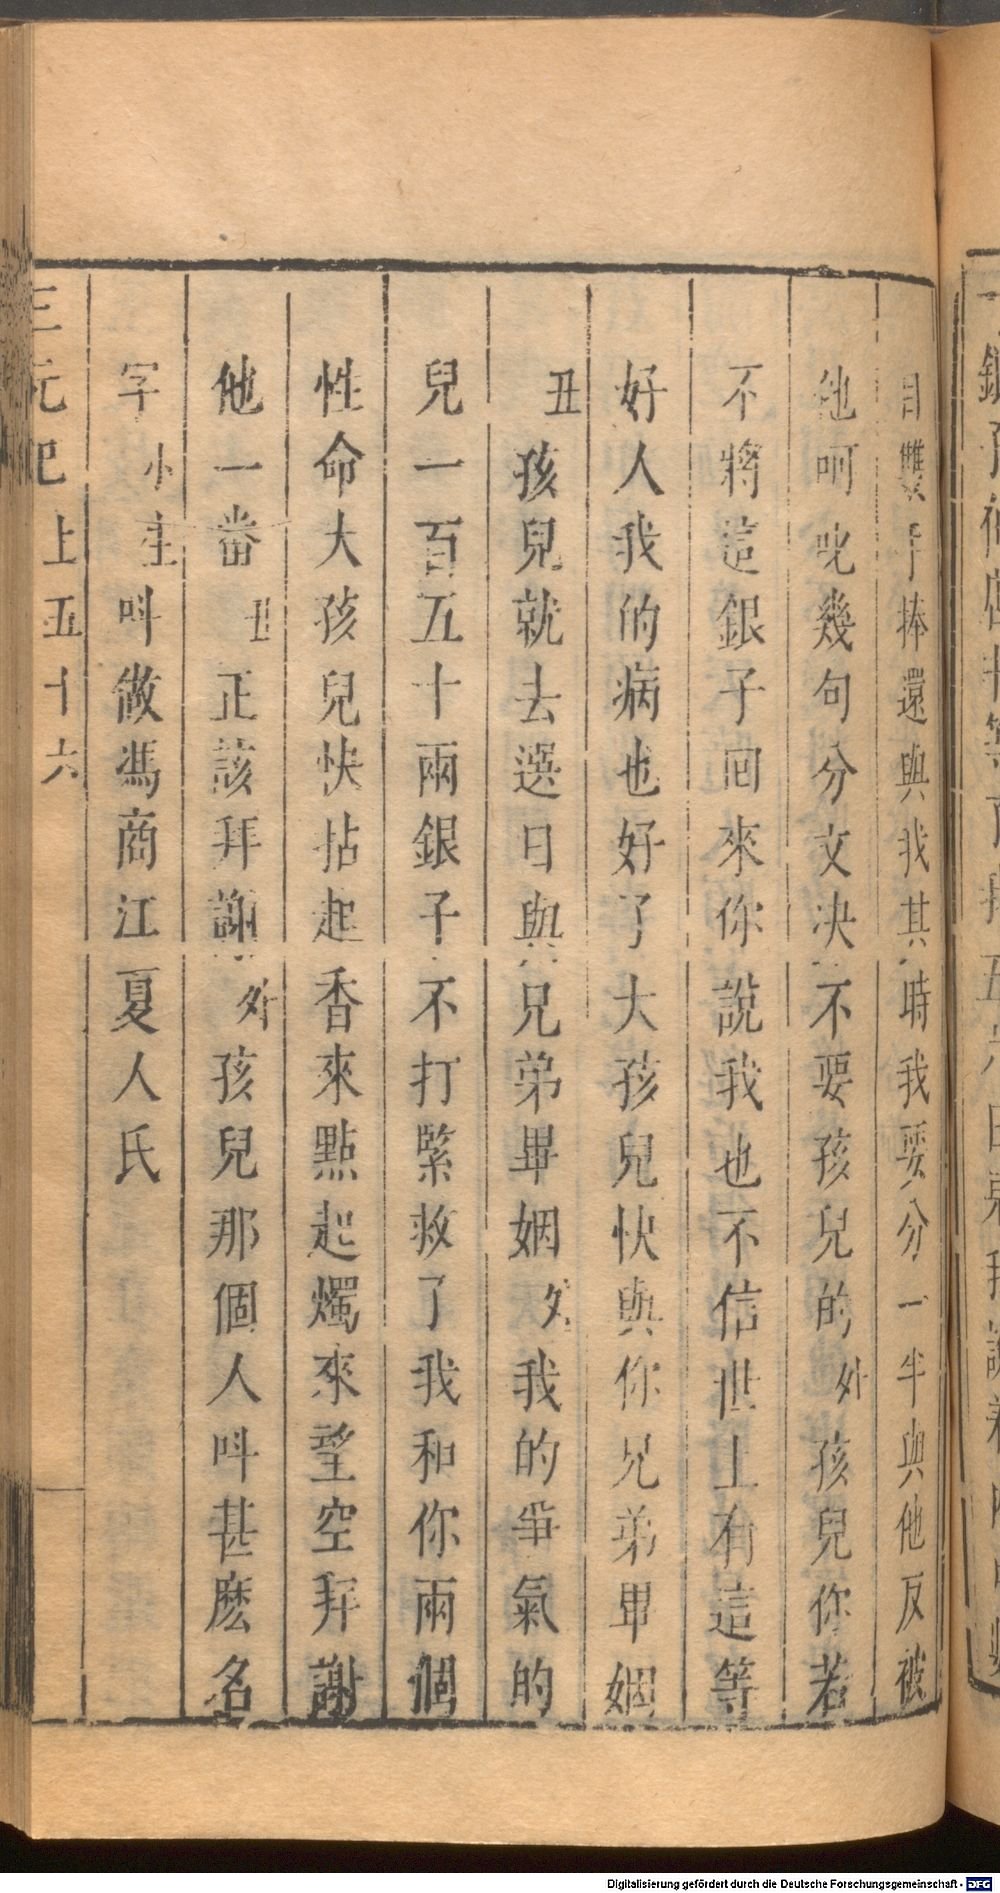 目雙手捧還與我其時我要分一半與他反被
他呵叱幾句分文决不要孩兒的外孩兒你若
不將這銀子回來你說我也不信世上有這等
好人我的病也好了大孩兒快與你兄弟畢姻
丑孩兒就去選日與兄弟畢姻外我的爭氣的
兒一百五十兩銀子不打緊救了我和你兩個
性命大孩兒快拈起香來點起燭來望空拜謝
他一番丑正該拜謝外孩兒那個人呌甚麽名
字小生呌做馮商江夏人氏
三元記 上五十六
Digitalisierung gefördert durch die Deutsche Forschungsgemeinschaft - DFG